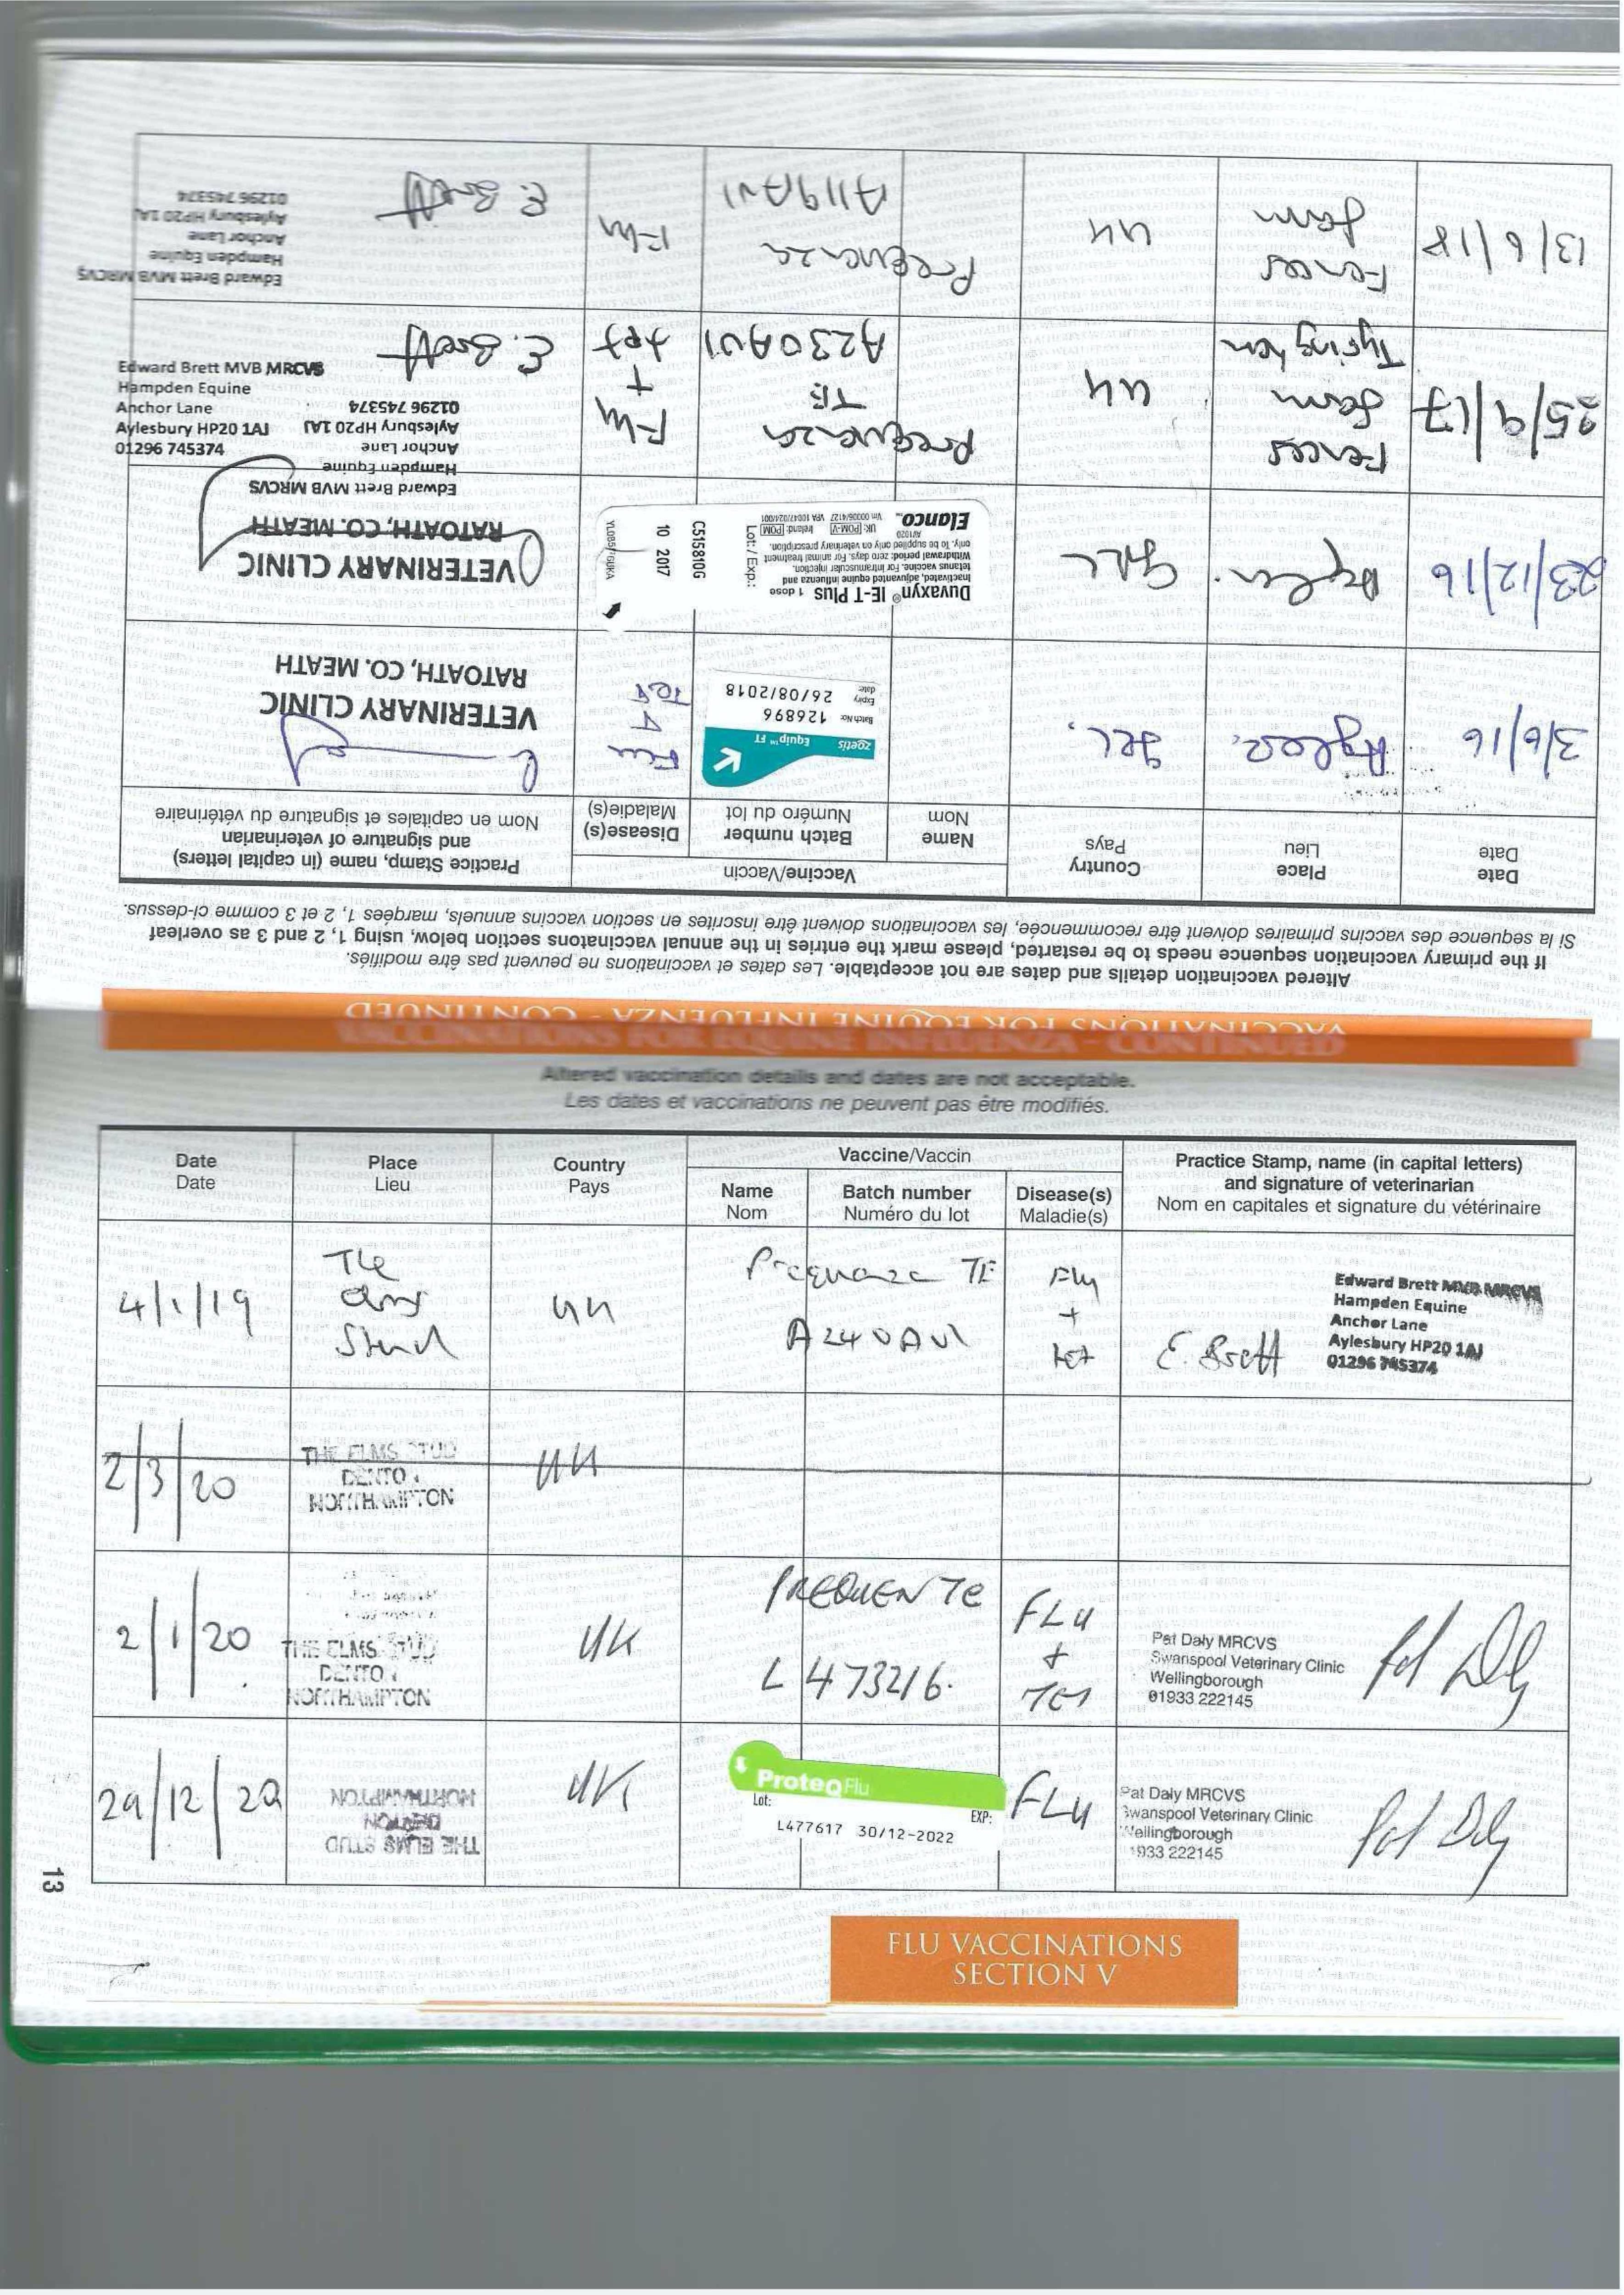 VACCINATIONS FOR EQUINE INFLUENZA - CONTINUED
Altered vaccination details and dates are not acceptable. Les dates et vaccinations ne peuvent pas être modifiés.
If the primary vaccination sequence needs to be restarted, please mark the entries in the annual vaccinatons section below, using 1, 2 and 3 as overleaf
Si la sequence des vaccins primaires doivent être recommencée, les vaccinations doivent être inscrites en section vaccins annuels, marqées 1, 2 et 3 comme ci-dessus.
Date
Date
Place
Lieu
Country
Pays
Vaccine/Vaccin
Name
Nom
Batch number
Numéro du lot
Disease(s)
Maladie(s)
Practice Stamp, name (in capital letters)
and signature of veterinarian
Nom en capitales et signature du vétérinaire
3/6/16
zoetis Equip™ FT
Batch No: 126896
Expiry date: 26/08/2018
Flu
Tet
VETERINARY CLINIC
RATOATH, CO. MEATH
23/12/16
Duvaxyn® IE-T Plus 1 dose
Inactivated, adjuvanted equine influenza and
tetanus vaccine. For intramuscular injection.
Withdrawal period: zero days. For animal treatment
only. To be supplied only on veterinary prescription.
UK: POM-V Ireland: POM
Elanco
Lot / Exp.:
C515810G
10 2017
VETERINARY CLINIC
RATOATH, CO. MEATH
25/9/17
Fences
Farm
Tyringham
UK
Prequenza
TE
A230AV1
Flu
+
tet
E. Brett
Edward Brett MVB MRCVS
Hampden Equine
Anchor Lane
Aylesbury HP20 1AJ
01296 745374
Edward Brett MVB MRCVS
Hampden Equine
Anchor Lane
Aylesbury HP20 1AJ
01296 745374
13/6/18
Fences
Farm
UK
Prequenza
A119AV1
Flu
E. Brett
Edward Brett MVB MRCVS
Hampden Equine
Anchor Lane
Aylesbury HP20 1A
01296 745374
VACCINATIONS FOR EQUINE INFLUENZA - CONTINUED
Altered vaccination details and dates are not acceptable.
Les dates et vaccinations ne peuvent pas être modifiés.
Date
Date
Place
Lieu
Country
Pays
Vaccine/Vaccin
Name
Nom
Batch number
Numéro du lot
Disease(s)
Maladie(s)
Practice Stamp, name (in capital letters)
and signature of veterinarian
Nom en capitales et signature du vétérinaire
4/1/19
The
Stud
UK
Prequenza TE
A240AV1
Flu
+
tet
E. Brett
Edward Brett MVB MRCVS
Hampden Equine
Anchor Lane
Aylesbury HP20 1AJ
01296 745374
2/3/20
THE ELMS STUD
DENTON
NORTHAMPTON
UK
2/1/20
THE ELMS STUD
DENTON
NORTHAMPTON
UK
PREQUEN TE
L473216.
FLU
+
TET
Pat Daly MRCVS
Swanspool Veterinary Clinic
Wellingborough
01933 222145
Pat Daly
29/12/20
THE ELMS STUD
DENTON
NORTHAMPTON
UK
ProteqFlu
Lot:
EXP:
L477617 30/12-2022
FLU
Pat Daly MRCVS
Swanspool Veterinary Clinic
Wellingborough
1933 222145
Pat Daly
13
FLU VACCINATIONS
SECTION V